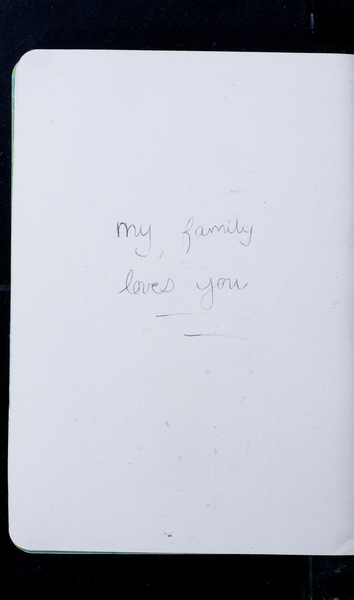 my family
loves you